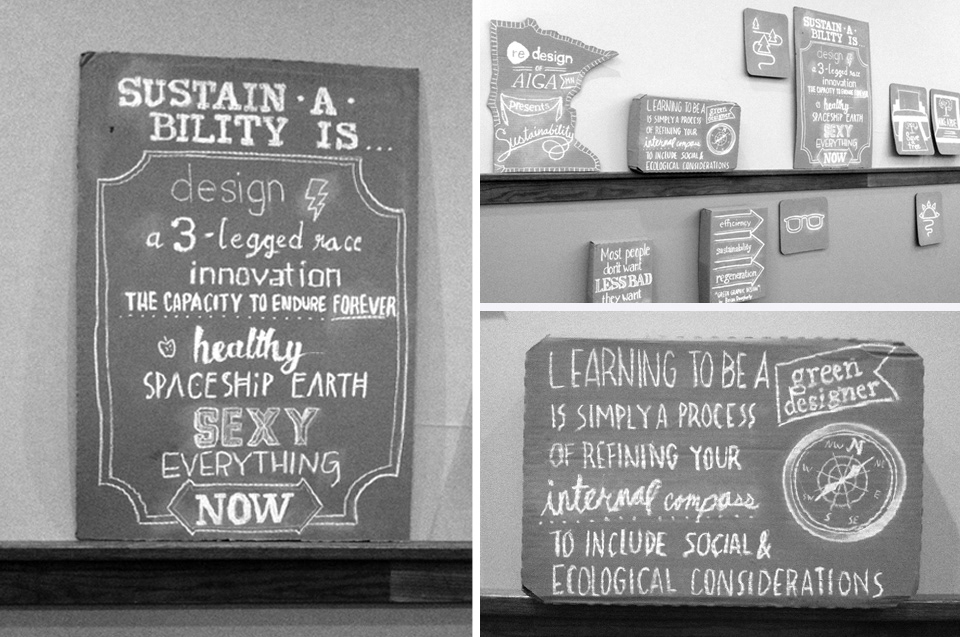 SUSTAIN·A·
BILITY IS...
design
a 3-legged race
innovation
THE CAPACITY TO ENDURE FOREVER
healthy
SPACESHIP EARTH
SEXY
EVERYTHING
NOW
re design
OF
AIGA MN
presents
Sustainability
LEARNING TO BE A green
designer
IS SIMPLY A PROCESS
OF REFINING YOUR
internal compass
TO INCLUDE SOCIAL &
ECOLOGICAL CONSIDERATIONS
SUSTAIN·A·
BILITY IS
design
a 3-legged race
innovation
THE CAPACITY TO ENDURE FOREVER
healthy
SPACESHIP EARTH
SEXY
EVERYTHING
NOW
Most people
don't want
LESS BAD
they want
efficiency
sustainability
regeneration
LEARNING TO BE A green
designer
IS SIMPLY A PROCESS
OF REFINING YOUR
internal compass
TO INCLUDE SOCIAL &
ECOLOGICAL CONSIDERATIONS
NW N NE
W E
S SE